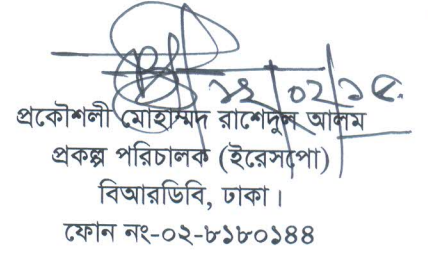 ১২/০২/১৫
প্রকৌশলী মোহাম্মদ রাশেদুল আলম
প্রকল্প পরিচালক (ইরেসপো)
বিআরডিবি, ঢাকা।
ফোন নং-০২-৮১৮০১৪৪